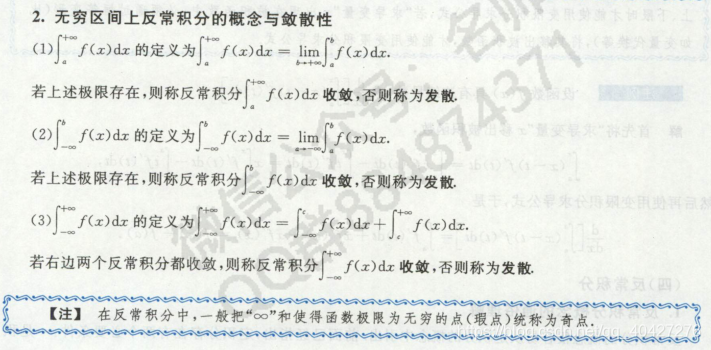 2. 无穷区间上反常积分的概念与敛散性
(1)∫ₐ⁺∞ f(x)dx 的定义为∫ₐ⁺∞ f(x)dx = lim_{b→+∞}∫ₐᵇ f(x)dx.
若上述极限存在,则称反常积分∫ₐ⁺∞ f(x)dx 收敛,否则称为发散.
(2)∫₋∞ᵇ f(x)dx 的定义为∫₋∞ᵇ f(x)dx = lim_{a→-∞}∫ₐᵇ f(x)dx.
若上述极限存在,则称反常积分∫₋∞ᵇ f(x)dx 收敛,否则称为发散.
(3)∫₋∞⁺∞ f(x)dx 的定义为∫₋∞⁺∞ f(x)dx = ∫₋∞ᶜ f(x)dx + ∫꜀⁺∞ f(x)dx.
若右边两个反常积分都收敛,则称反常积分∫₋∞⁺∞ f(x)dx 收敛,否则称为发散.
【注】 在反常积分中,一般把“∞”和使得函数极限为无穷的点(瑕点)统称为奇点.